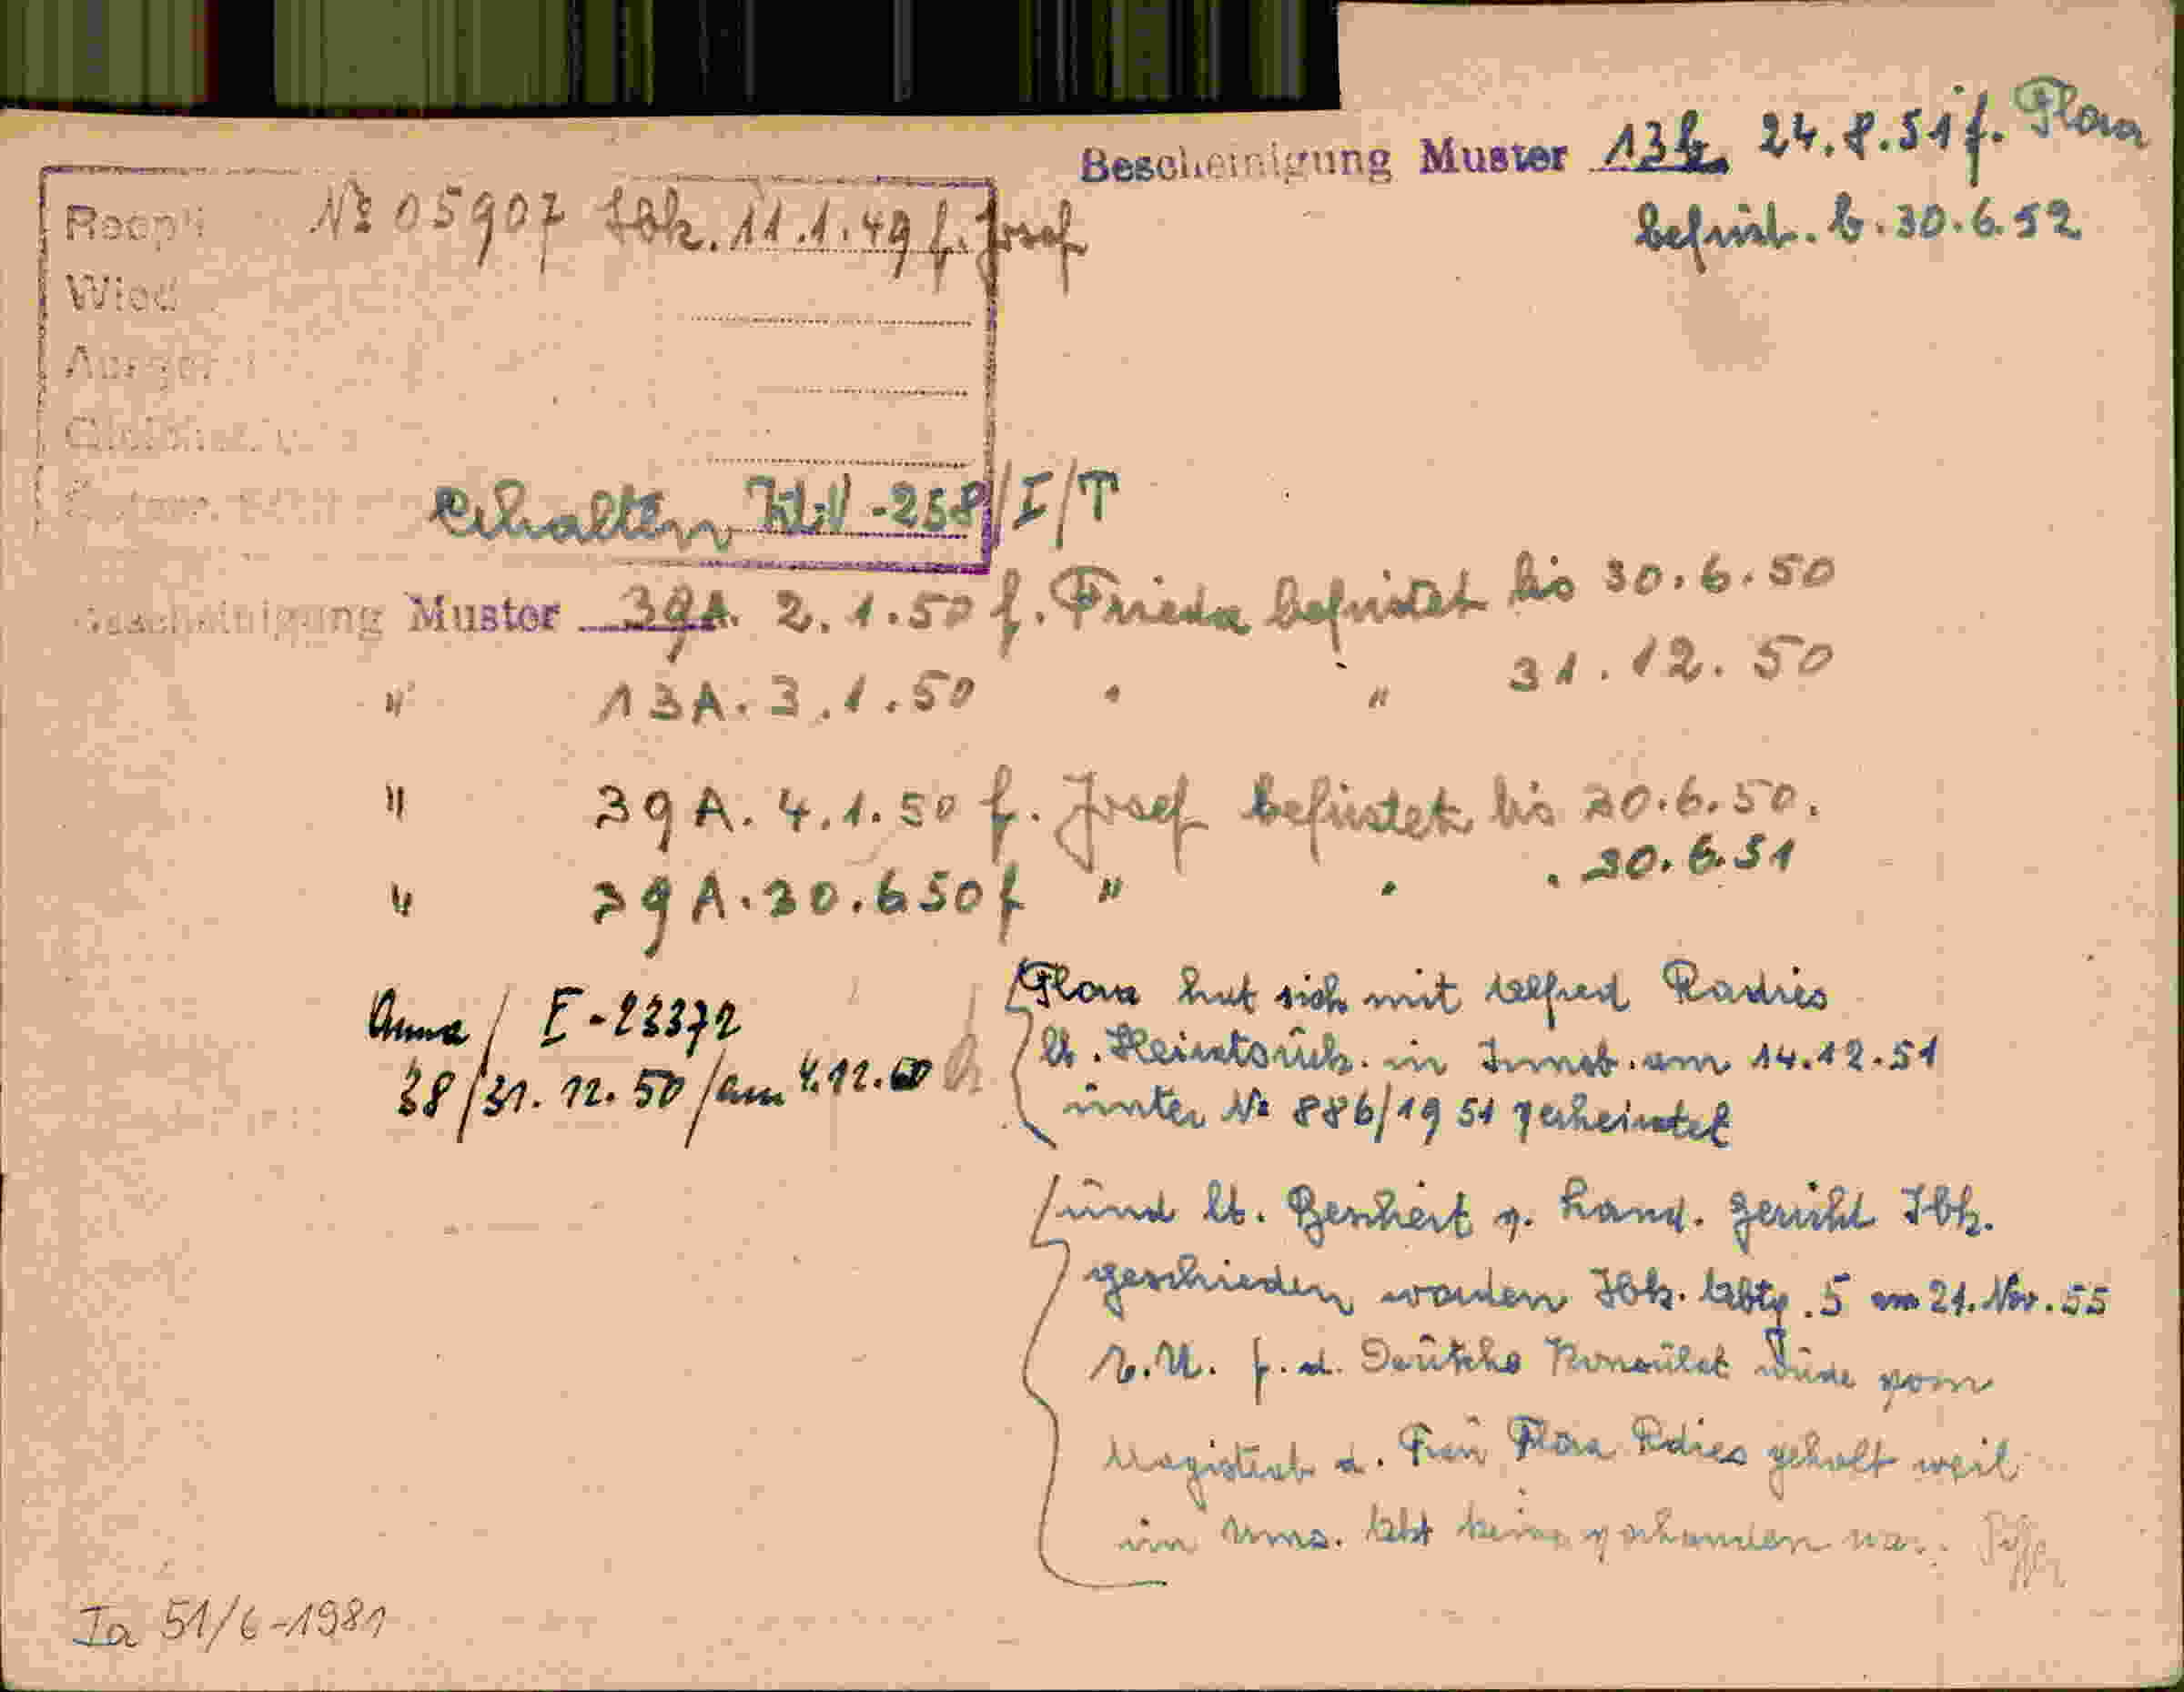 Bescheinigung Muster 13b 24.8.51 f. Flora
befrist. b. 30.6.52
Reopti
№ 05907 Ibk. 11.1.49 f. Josef
Wied
Ausger
Erhalten -258/I/T
Bescheinigung Muster 39A. 2.1.50 f. Frieda befristet bis 30.6.50
" 13A. 3.1.50 " " 31.12.50
" 39A. 4.1.50 f. Josef befristet bis 30.6.50.
" 39A. 30.6 50 f " " " 30.6.51
Anna / I-23372
38/31.12.50/am 4.12.50
Flora hat sich mit Alfred Radies
lt. Heiratsurk. in Innsb. am 14.12.51
unter № 886/1951 verheiratet
und lt. Bescheit v. Land. Gericht Ibk.
geschieden worden Ibk. Abtg. 5 am 21. Nov. 55
f. d. Deutsche Konsulat wurde vom
Magistrat d. Frau Flora Radies geholt weil
im Ums. Akt keine vorhanden war.
Ia 51/6-1981